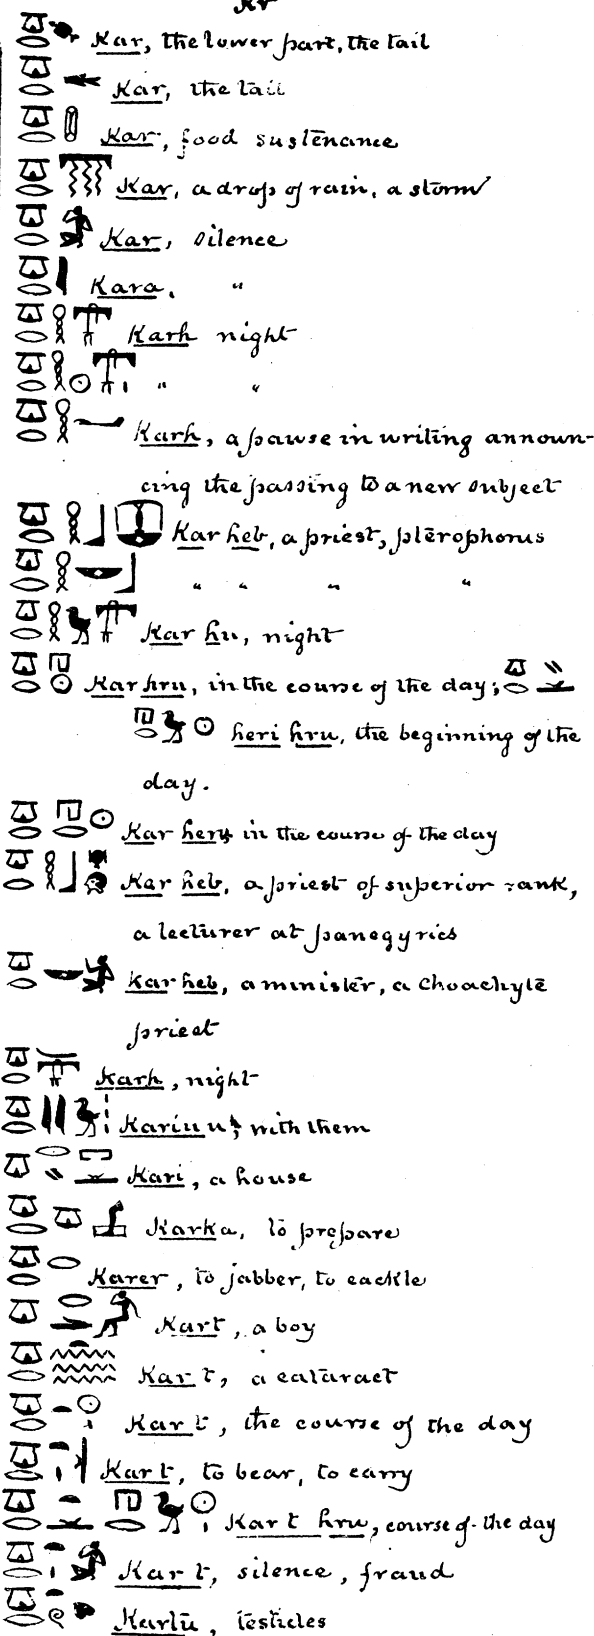 Kr
Kar, the lower part, the tail
Kar, the tail
Kar, food sustenance
Kar, a drop of rain, a storm
Kar, silence
Kara, "
Karh night
" "
Karh, a pause in writing announ-
cing the passing to a new subject
Kar heb, a priest, pterophorus
" " " "
Kar hu, night
Kar hru, in the course of the day;
heri hru, the beginning of the
day.
Kar heru in the course of the day
Kar heb, a priest of superior rank,
a lecturer at panegyrics
Kar heb, a minister, a Choachyte
priest
Karh, night
Kariu u, with them
Kari, a house
Karka, to prepare
Karer, to jabber, to cackle
Kart, a boy
Kar t, a cataract
Kar t, the course of the day
Kar t, to bear, to carry
Kar t hru, course of the day
Kar t, silence, fraud
Kartu, testicles